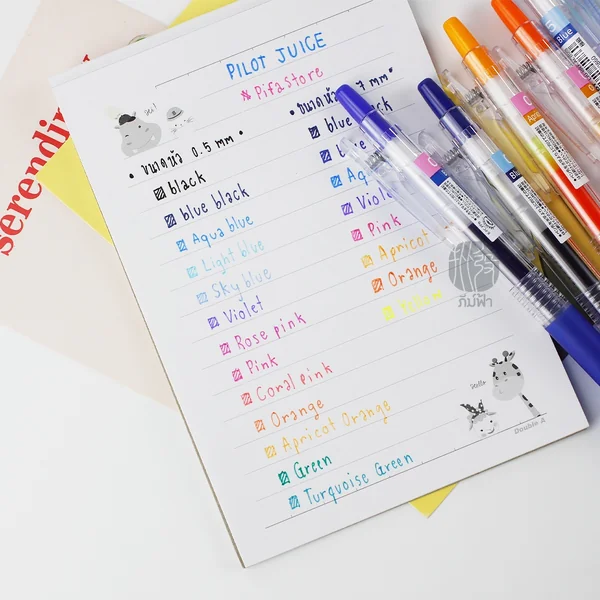 PILOT JUICE
PifaStore
ขนาดหัว 0.5 mm
black
blue black
Aqua blue
Light blue
Sky blue
Violet
Rose pink
Pink
Coral pink
Orange
Apricot Orange
Green
Turquoise Green
ขนาดหัว 7 mm
blue black
Violet
Pink
Apricot
Orange
Yellow
Hello
Double A
ภีมฟ้า
Blue